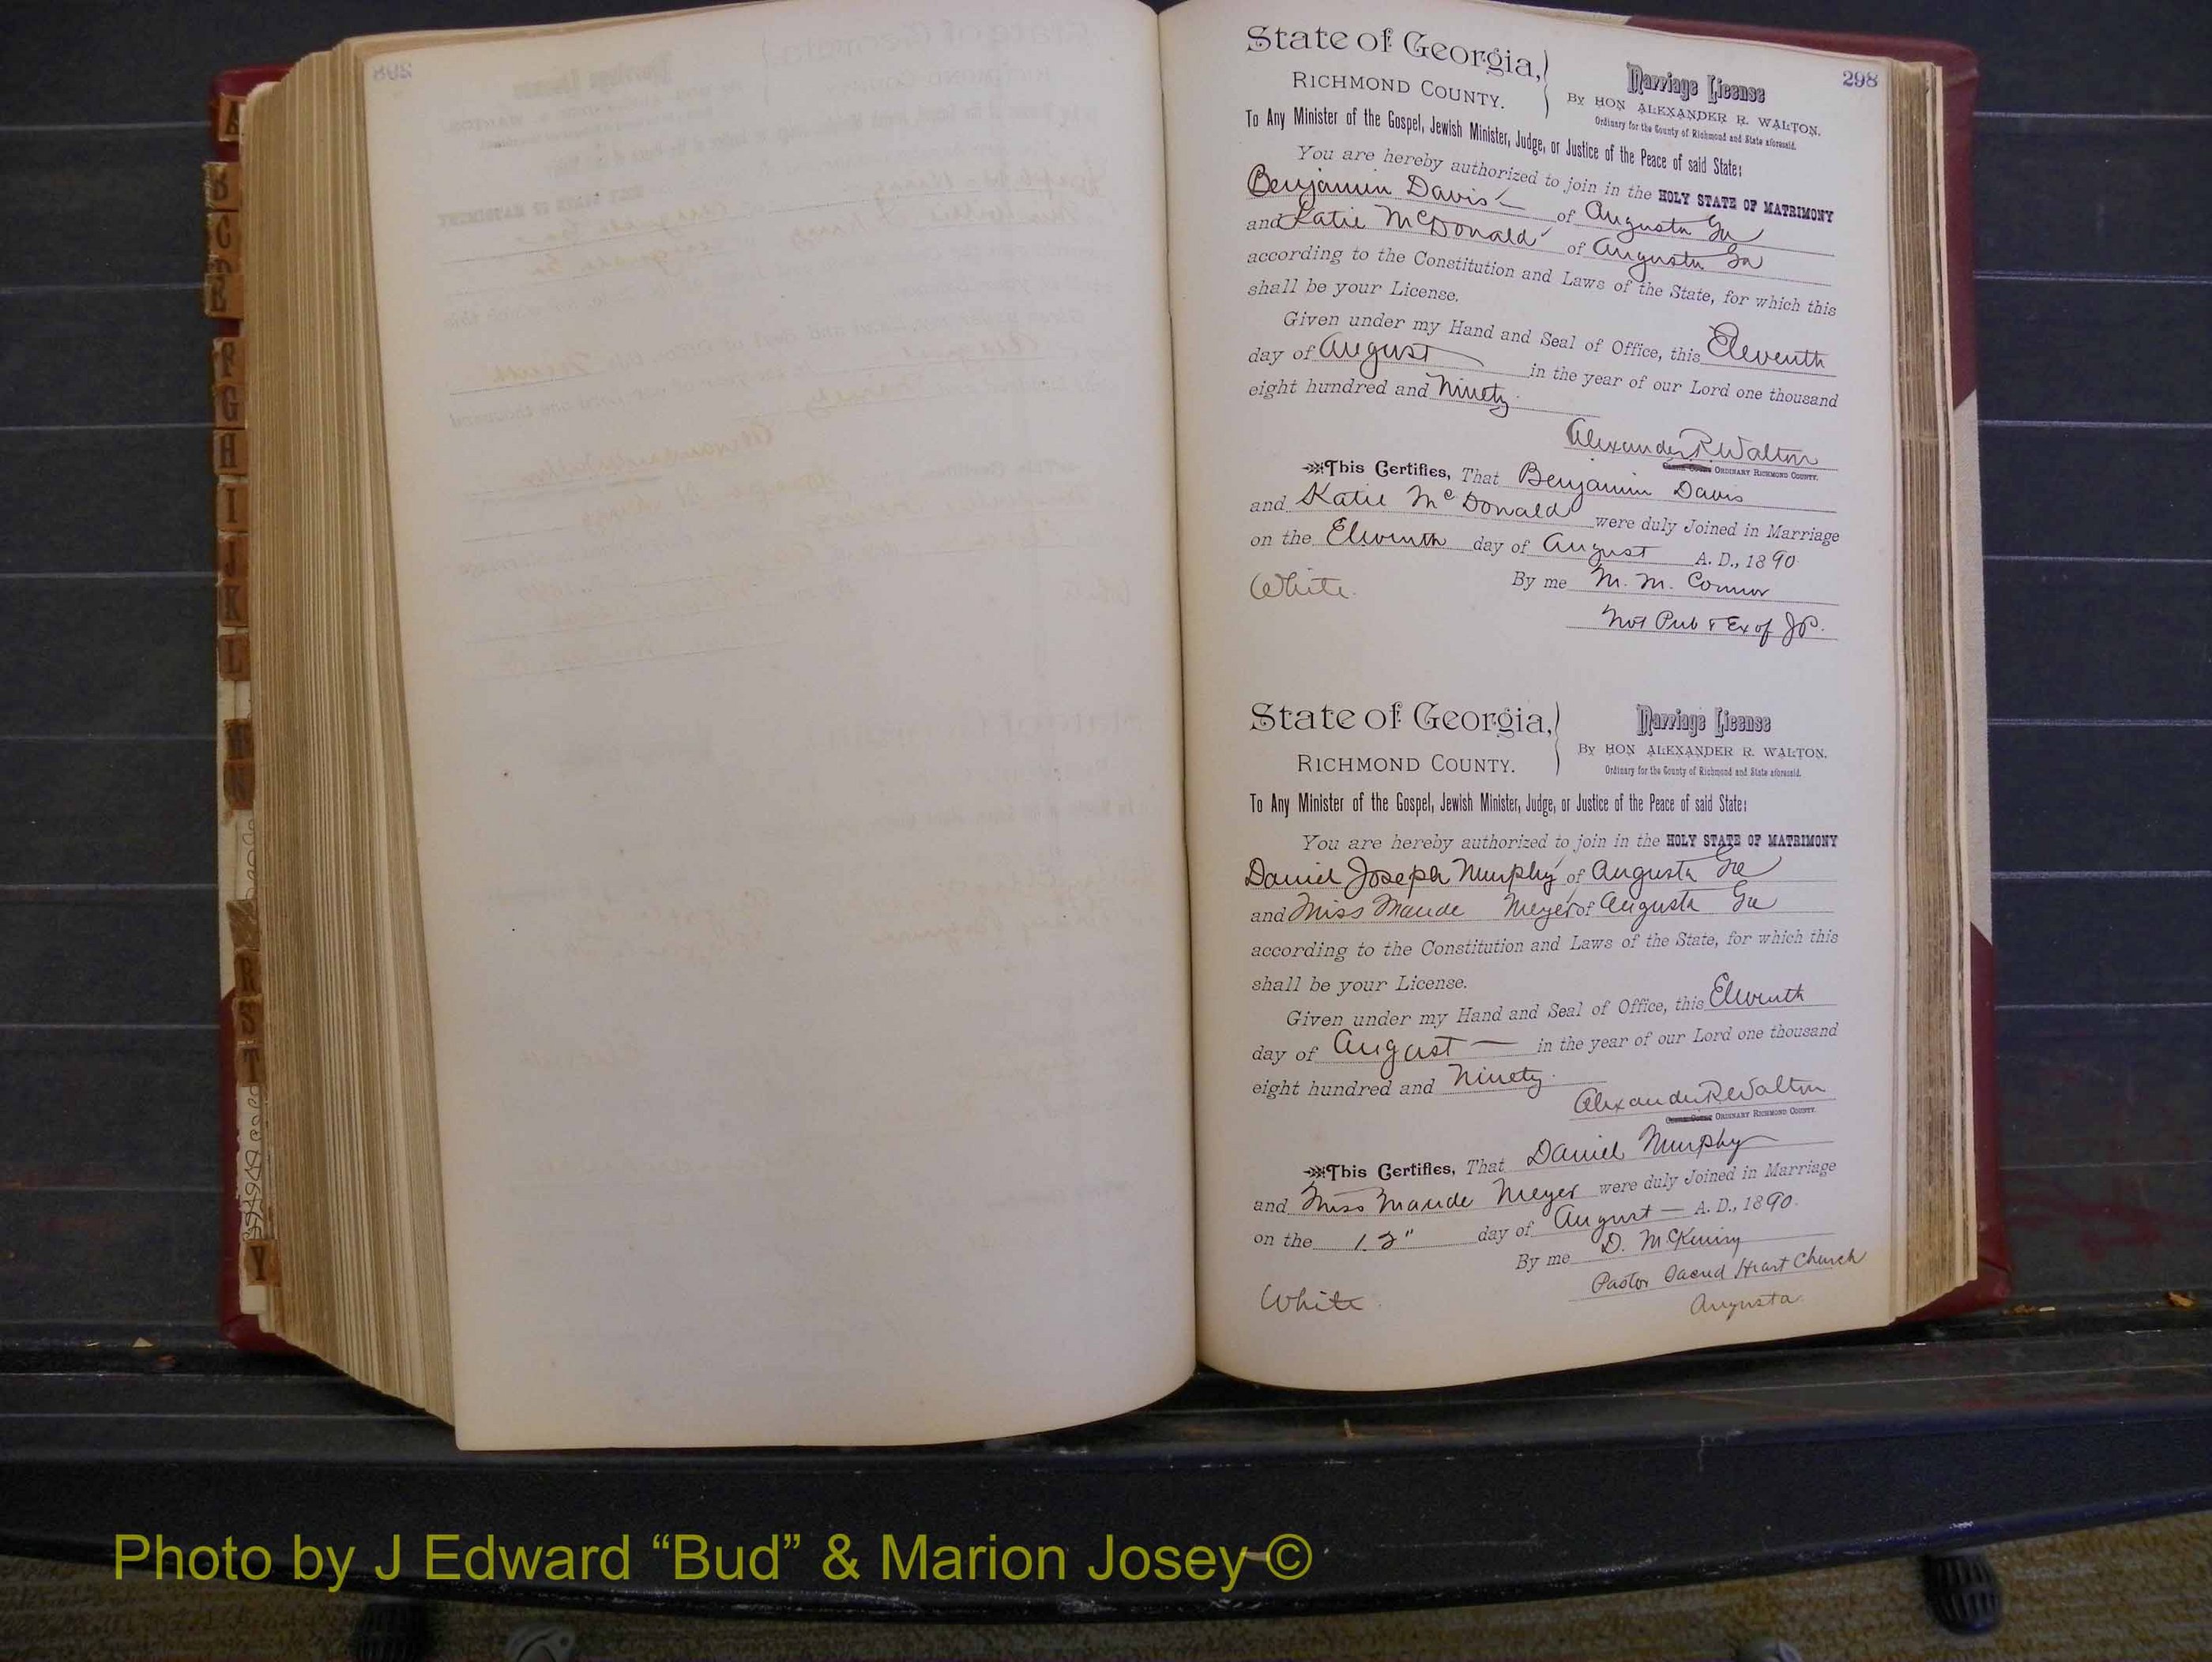 298
State of Georgia,
RICHMOND COUNTY.
Marriage License
BY HON ALEXANDER R. WALTON,
Ordinary for the County of Richmond and State aforesaid.
To Any Minister of the Gospel, Jewish Minister, Judge, or Justice of the Peace of said State:
You are hereby authorized to join in the HOLY STATE OF MATRIMONY
Benjamin Davis of Augusta Ga
and Katie McDonald of Augusta Ga
according to the Constitution and Laws of the State, for which this
shall be your License.
Given under my Hand and Seal of Office, this Eleventh
day of August in the year of our Lord one thousand
eight hundred and Ninety
Alexander R Walton
ORDINARY RICHMOND COUNTY.
This Certifies, That Benjamin Davis
and Katie McDonald were duly Joined in Marriage
on the Eleventh day of August A. D., 1890
White By me M. M. Connor
Not Pub & Ex of JP.
State of Georgia,
RICHMOND COUNTY.
Marriage License
BY HON ALEXANDER R. WALTON,
Ordinary for the County of Richmond and State aforesaid.
To Any Minister of the Gospel, Jewish Minister, Judge, or Justice of the Peace of said State:
You are hereby authorized to join in the HOLY STATE OF MATRIMONY
Daniel Joseph Murphy of Augusta Ga
and Miss Maude Meyer of Augusta Ga
according to the Constitution and Laws of the State, for which this
shall be your License.
Given under my Hand and Seal of Office, this Eleventh
day of August — in the year of our Lord one thousand
eight hundred and Ninety
Alexander R Walton
ORDINARY RICHMOND COUNTY.
This Certifies, That Daniel Murphy
and Miss Maude Meyer were duly Joined in Marriage
on the 12" day of August — A. D., 1890.
By me D. McKiniry
Pastor Sacred Heart Church
White Augusta
A
B
C
D
E
F
G
H
I
J
K
L
M
N
R
S
T
Y
Photo by J Edward “Bud” & Marion Josey ©